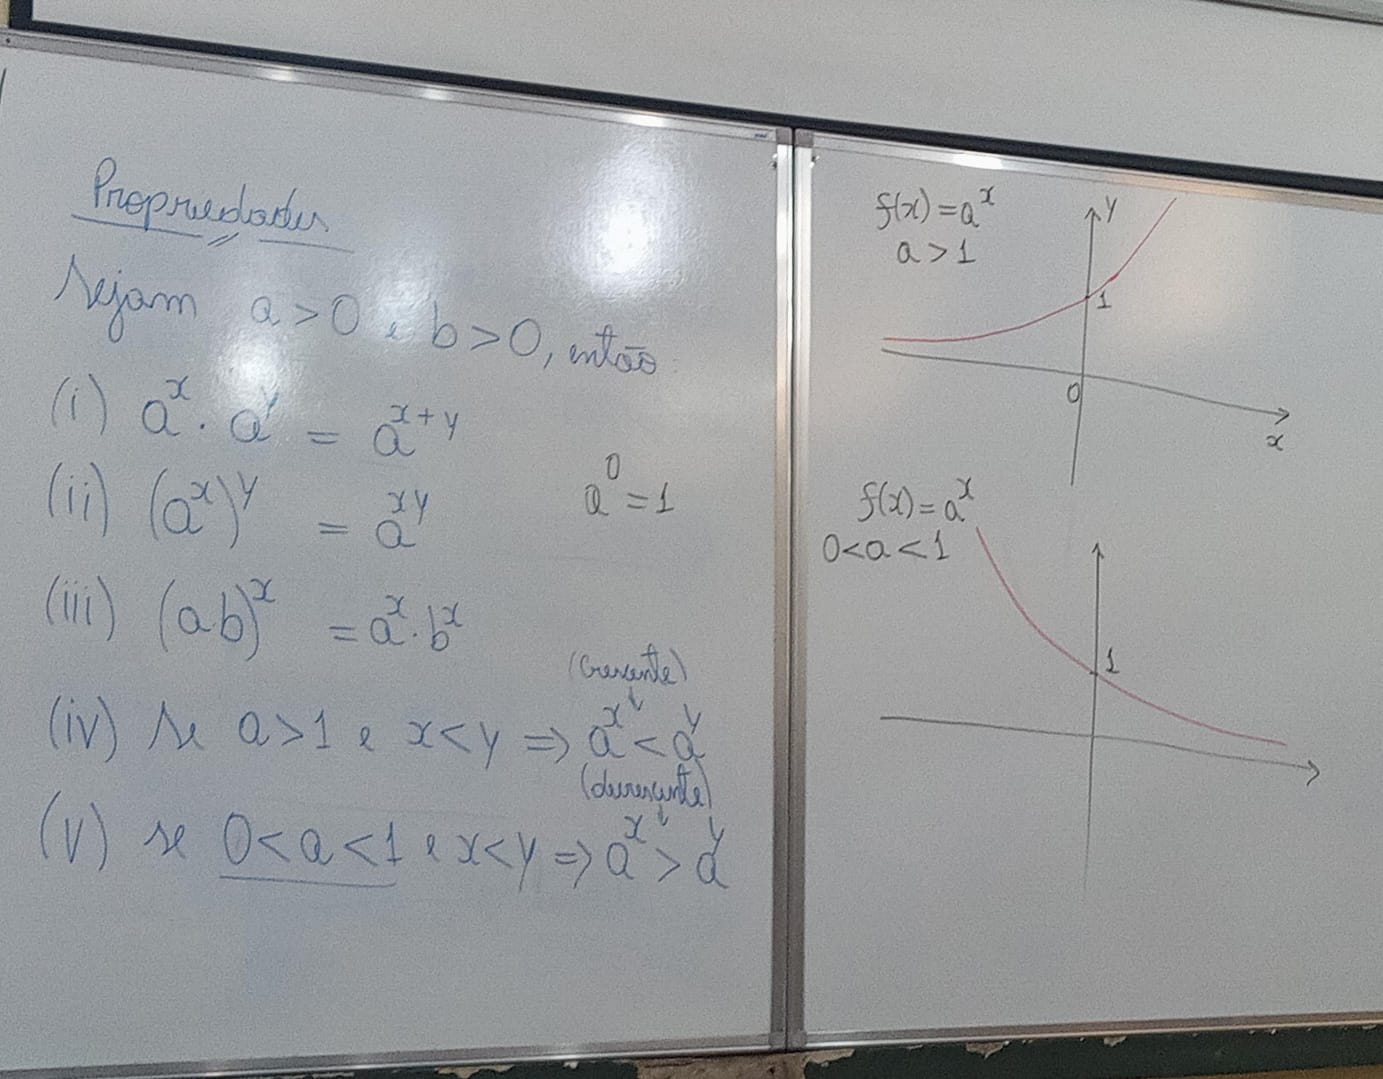 Propriedades
Sejam a > 0 e b > 0, então
(i) a^x . a^y = a^{x+y}
(ii) (a^x)^y = a^{xy}
a^0 = 1
(iii) (a.b)^x = a^x . b^x
(crescente)
(iv) Se a > 1 e x < y ⇒ a^x < a^y
(decrescente)
(v) se 0 < a < 1 e x < y ⇒ a^x > a^y
f(x) = a^x
a > 1
y
1
0
x
f(x) = a^x
0 < a < 1
1